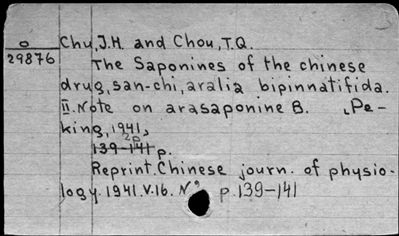 o
29876
Chu, J.H. and Chou, T.Q.
The Saponines of the chinese
drug, san-chi, aralia bipinnatifida.
II. Note on arasaponine B. Pe-
king, 1941,
2 p
139-141 p.
Reprint. Chinese journ. of physio-
logy. 1941. V.16. Nº p. 139-141